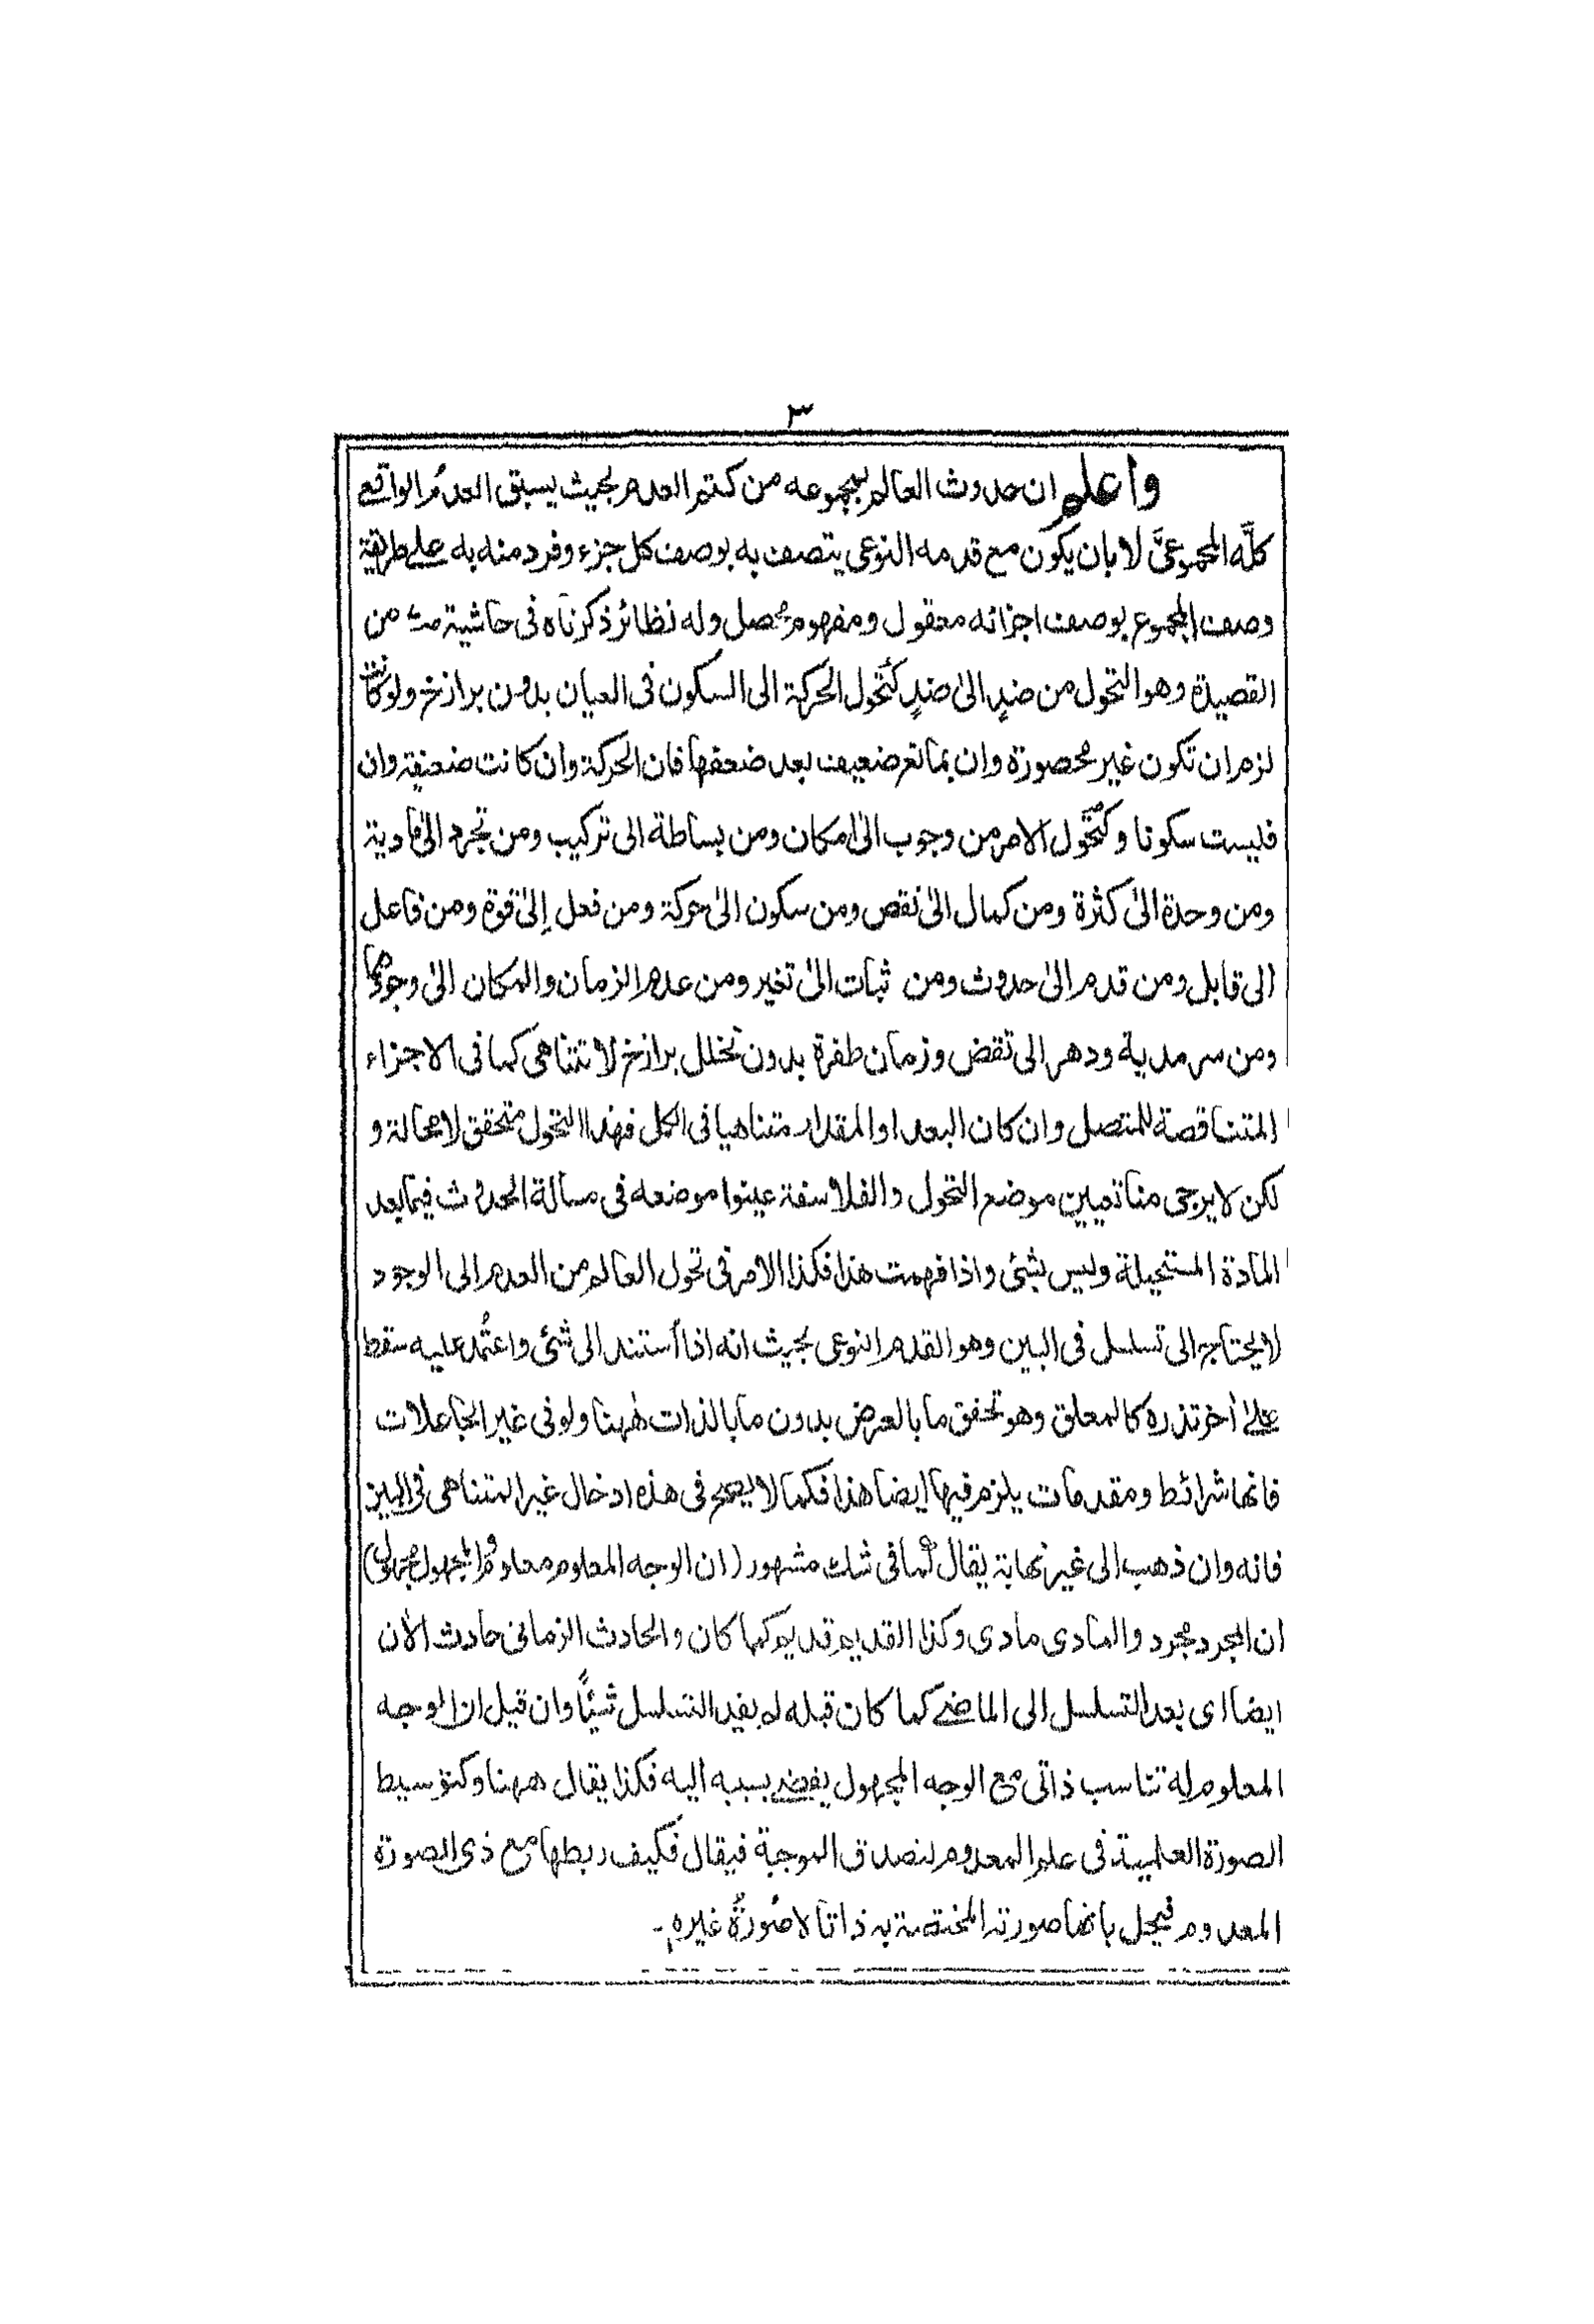 ٣
واعلم ان حدوث العالم بمجموعه من كتم العدم بحيث يسبق العدمُ الواقع
كلَّه المجموعىَّ لا بان يكون مع قدمه النوعى يتصف به بوصف كل جزء وفرد منه به على طريقة
وصف المجموع بوصف اجزائه معقول ومفهوم محصل وله نظائر ذكرناه فى حاشية من
القصيدة وهو التحول من ضدٍ الىٰ ضدٍ كتحول الحركة الى السكون فى العيان بدون برازخ ولو كانت
لزم ان تكون غير محصورة وان بمانع ضعيف بعد ضعفها فان الحركة وان كانت ضعيفة وان
فليست سكونا وكتحول الامر من وجوب الىٰ امكان ومن بساطة الى تركيب ومن تجرد الىٰ مادية
ومن وحدة الىٰ كثرة ومن كمال الىٰ نقص ومن سكون الىٰ حركة ومن فعل إلىٰ قوة ومن فاعل
الى قابل ومن قدم الىٰ حدوث ومن ثبات الىٰ تغير ومن عدم الزمان والمكان الىٰ وجودهما
ومن سرمدية ودهر الى تقض وزمان طفرة بدون تخلل برازخ لا تتناهى كما فى الاجزاء
المتناقصة للمتصل وان كان البعد او المقدار متناهيا فى الكل فهذا التحول متحقق لا محالة و
لكن لا يرجى منا تعيين موضع التحول والفلاسفة عينوا موضعه فى مسألة الحدوث فيما بعد
المادة المستحيلة وليس بشئ واذا فهمت هذا فكذا الامر فى تحول العالم من العدم الى الوجود
لا يحتاج الى تسلسل فى البين وهو القدم النوعى بحيث انه اذا اُستند الى شئ واعتُمد عليه سقط
علىٰ اخر تذره كالمعلق وهو تحقق ما بالعرض بدون ما بالذات هٰهنا ولو فى غير الجاعلات
فانها شرائط ومقدمات يلزم فيها ايضا هذا فكما لا يصح فى هذه ادخال غير المتناهى فى البين
فانه وان ذهب الى غير نهاية يقال كما فى شك مشهور (ان الوجه المعلوم معلوم والمجهول مجهول)
ان المجرد مجرد والمادى مادى وكذا القديم قديم كما كان والحادث الزمانى حادث الاٰن
ايضا اى بعد التسلسل الى الماضى كما كان قبله لم يفد التسلسل شيئًا وان قيل ان الوجه
المعلوم له تناسب ذاتى مع الوجه المجهول يفضى بسببه اليه فكذا يقال هٰهنا وكتوسيط
الصورة العلمية فى علم المعدوم لتصدق الموجبة فيقال فكيف ربطها مع ذى الصورة
المعدوم فيحل بانها صورته المختصة به ذاتا لا صُورةُ غيره۔